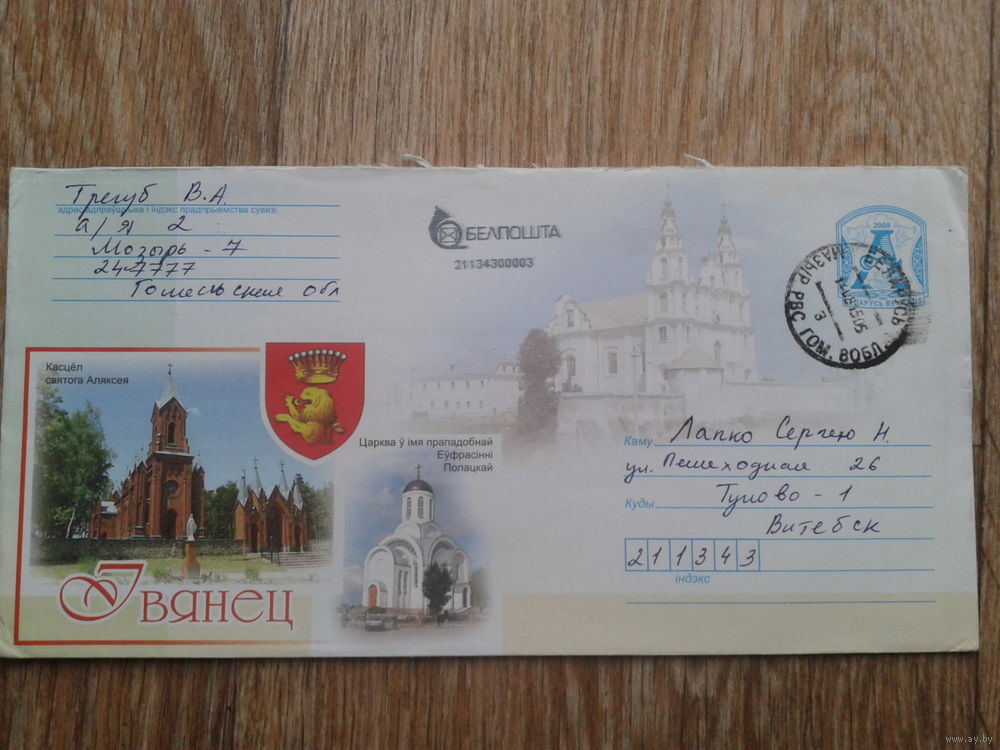 Трегуб В.А.
а/я 2
Мозырь - 7
247777
Гомельская обл
БЕЛПОШТА
21134300003
2009
МАЗЫР РВС ГОМ. ВОБЛ.
3
Касцёл
святога Аляксея
Царква ў імя прападобнай
Еўфрасінні
Полацкай
Івянец
Каму Лапко Сергею Н.
ул. Пешеходная 26
Куды Тулово - 1
Витебск
211343
індэкс
www.ay.by